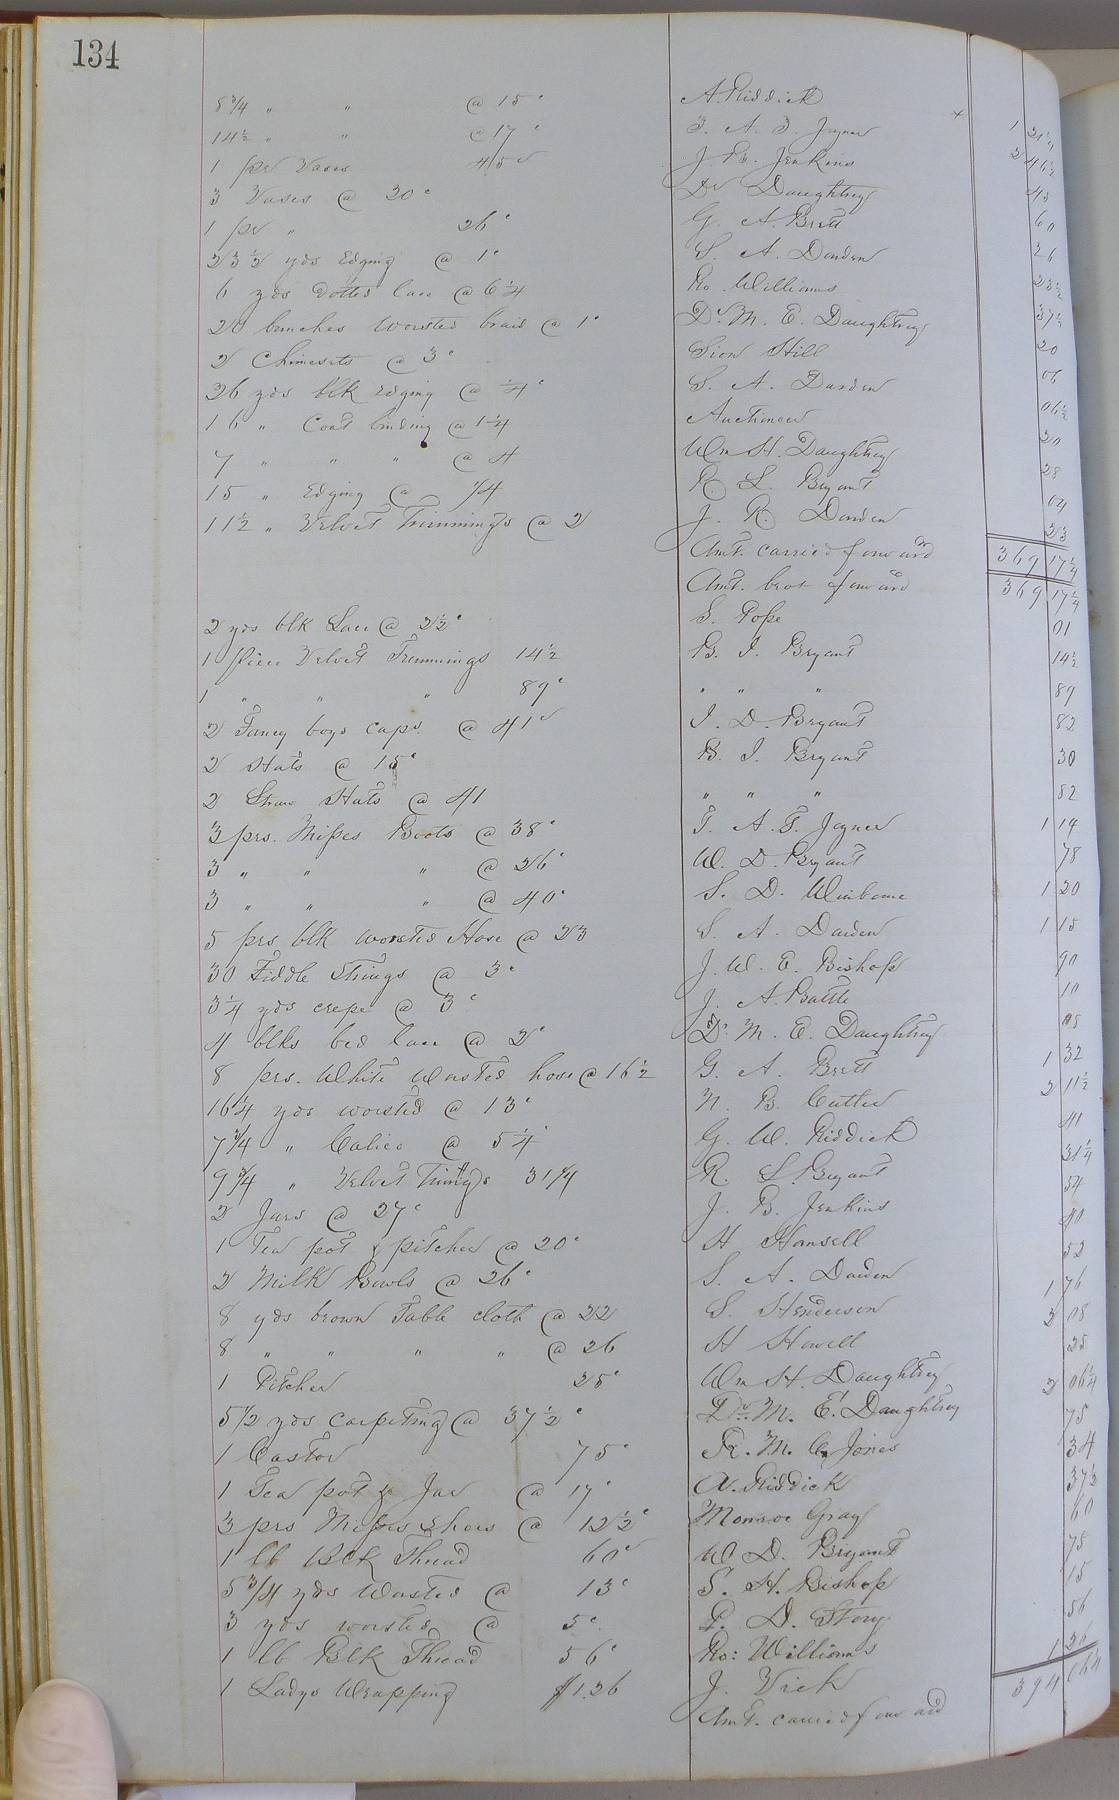 134
8 3/4 " " @ 15c A. Riddick 1 31 1/4
14 1/2 " " @ 17c T. A. T. Joyner 2 46 1/2
1 pr Vases 45c J. B. Jenkins 45
3 Vases @ 20c Dr Daughtrey 60
1 pr " 26c G. A. Britt 26
23 1/2 yds Edging @ 1c S. A. Darden 23 1/2
6 yds Dotted lace @ 6 1/4 Ro. Williams 37 1/2
20 bunches Worsted braid @ 1c Dr M. E. Daughtrey 20
2 Chimesets @ 3c Sion Hill 06
26 yds blk edging @ 1/4c S. A. Darden 06 1/2
16 " Coat binding @ 1 1/4 Auctioneer 20
7 " " " @ 4 Wm H. Daughtrey 28
15 " Edging @ 1/4 R. L. Bryant 04
11 1/2 " Velvet Trimmings @ 2 J. R. Darden 23
Amt. carried forward 369 17 1/4
Amt. brot forward 369 17 1/4
2 yds blk Lace @ 2 1/2c S. Pope 01
1 piece Velvet Trimmings 14 1/2 B. I. Bryant 14 1/2
1 " " " 89c " " " 89
2 Fancy boys caps @ 41c J. D. Bryant 82
2 Hats @ 15c B. I. Bryant 30
2 Straw Hats @ 41 " " " 82
3 prs. Misses Boots @ 38c T. A. T. Joyner 1 14
3 " " " @ 26c W. D. Bryant 78
3 " " " @ 40c S. D. Winborne 1 20
5 prs blk worsted Hose @ 23 S. A. Darden 1 15
30 Fiddle Strings @ 3c J. W. E. Bishop 90
3 1/4 yds crepe @ 3c J. A. Battle 10
4 blks bed lace @ 2c Dr. M. E. Daughtrey 08
8 prs. White Worsted hose @ 16 1/2 G. A. Britt 1 32
16 1/4 yds worsted @ 13c N. B. Cutler 2 11 1/2
7 3/4 " Calico @ 5 1/4 G. W. Riddick 41
9 3/4 " Velvet Trimgs 31 1/4 R. L. Bryant 31 1/4
2 Jars @ 27c J. B. Jenkins 54
1 Tea pot & pitcher @ 20c H Hansell 40
2 Milk Bowls @ 26c S. A. Darden 52
8 yds brown Table cloth @ 22 S. Henderson 1 76
8 " " " " @ 26 H Howell 2 08
1 Pitcher 25c Wm H. Daughtrey 25
5 1/2 yds carpeting @ 37 1/2c Dr. M. E. Daughtrey 2 06 1/4
1 Castor 75c R. M. C. Jones 75
1 Tea pot & Jar @ 17c A. Riddick 34
3 prs Misses Shoes @ 12 1/2c Monroe Gray 37 1/2
1 lb Blk Thread 60c W D. Bryant 60
5 3/4 yds Worsted @ 13c S. H. Bishop 75
3 yds worsted @ 5c P. D. Story 15
1 lb Blk Thread 56c Ro: Williams 56
1 Ladys Wrapping $1.26 J. Vick 1 26
Amt. carried forward 394 06 1/4